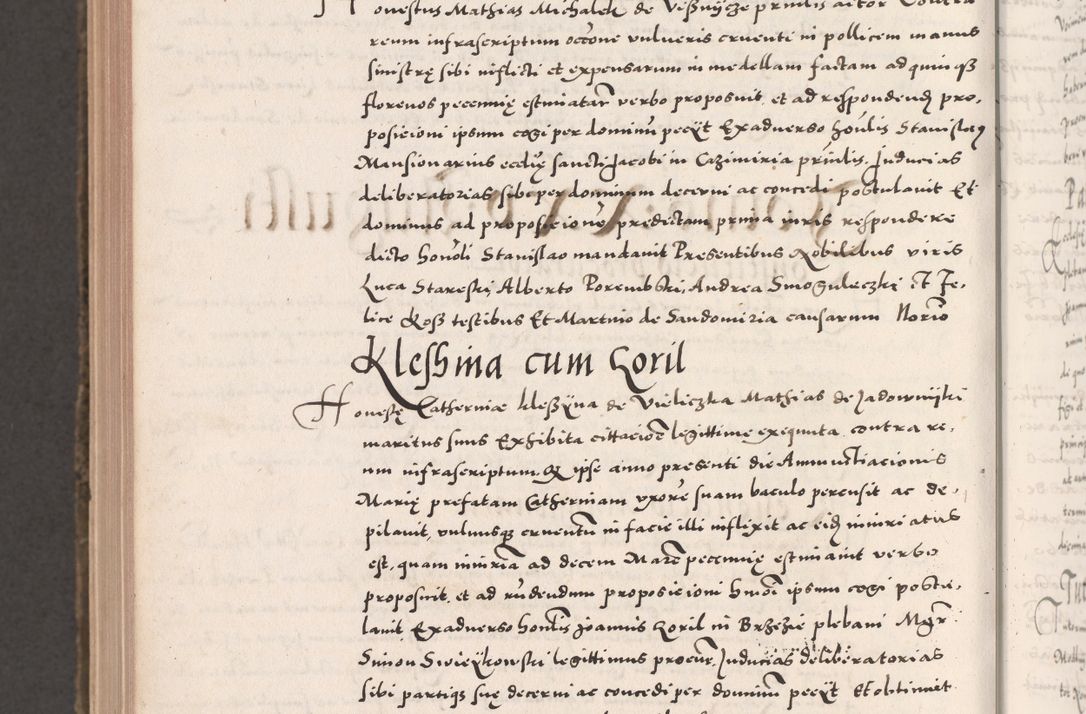 Honestus Mathias Michalek de Vesnycze princlis actor Contra
reum infrascriptum occōne vulneris cruenti in pollicem manus
sinistrę sibi inflicti et expensarum in medellam factam ad quinqꝫ
florenos pecunię estimatar̄ verbo proposuit, et ad respondendꝫ pro-
posicioni ipsum cogi per dominū pecyt Exaduerso honlis Stanislaus
Mansionarius ecclię sancti Jacobi in Cazimiria princlis. Inducias
deliberatorias sibi per dominum decerni ac concedi postulauit Et
dominus ad proposicionē predictam prima iuris respondere
dicto honoli Stanislao mandauit Presentibus Nobilibus viris
Luca Stareski, Alberto Porembski, Andrea Smoguleczki Et Fe-
lice Ross testibus Et Martino de Sandomiria causarum Norio
Klesshina cum Goril
Honestę Catherinae Klesżyna de Vieliczka Mathias de Jadownijki
maritus suus Exhibita cittacioē legittime exequuta contra re-
um infrascriptum, Qꝫ ipse anno presenti die Annuntiacionis
Marię prefatam Catherinam vxorē suam baculo percusit ac de-
pilauit, vulnusqꝫ cruentū in facie illi inflixit ac eidꝫ iniuriatus
est, quam iniuriā ad decem Marc̄ pecunię estimauit verbo
proposuit, et ad rn̄dendum proposicioni hmōi ipsum cogi postu-
lauit, Exaduerso honlis Joannis Goril in Brzezie plebani Mgr̄
Simon Swieykowski legittimus procur. Inducias deliberatorias
sibi partiqꝫ suę decerni ac concedi per dominū pecyt Et obtinuit